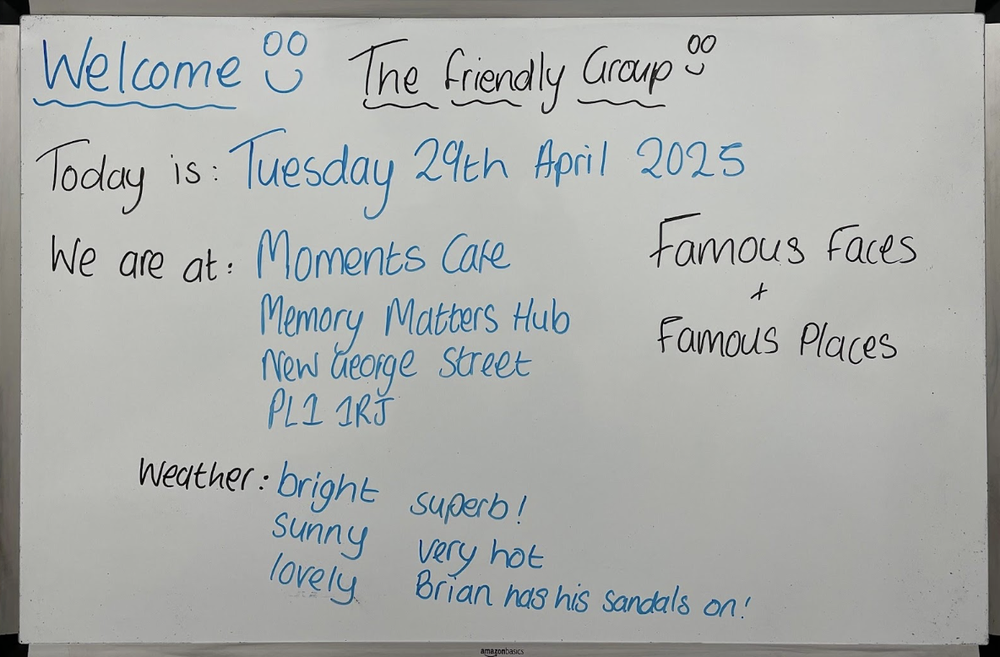 Welcome
The friendly Group
Today is: Tuesday 29th April 2025
We are at: Moments Cafe
Memory Matters Hub
New George Street
PL1 1RJ
Famous Faces
+
Famous Places
Weather: bright superb!
sunny very hot
lovely Brian has his sandals on!
amazonbasics